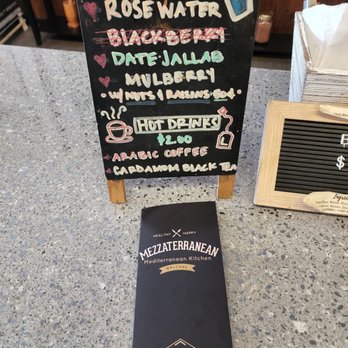 ROSE WATER
BLACKBERRY
DATE·JALLAB
MULBERRY
HOT DRINKS
$2.00
ARABIC COFFEE
CARDAMOM BLACK TEA
HEALTHY HAPPY
MEZZATERRANEAN
Mediterranean Kitchen